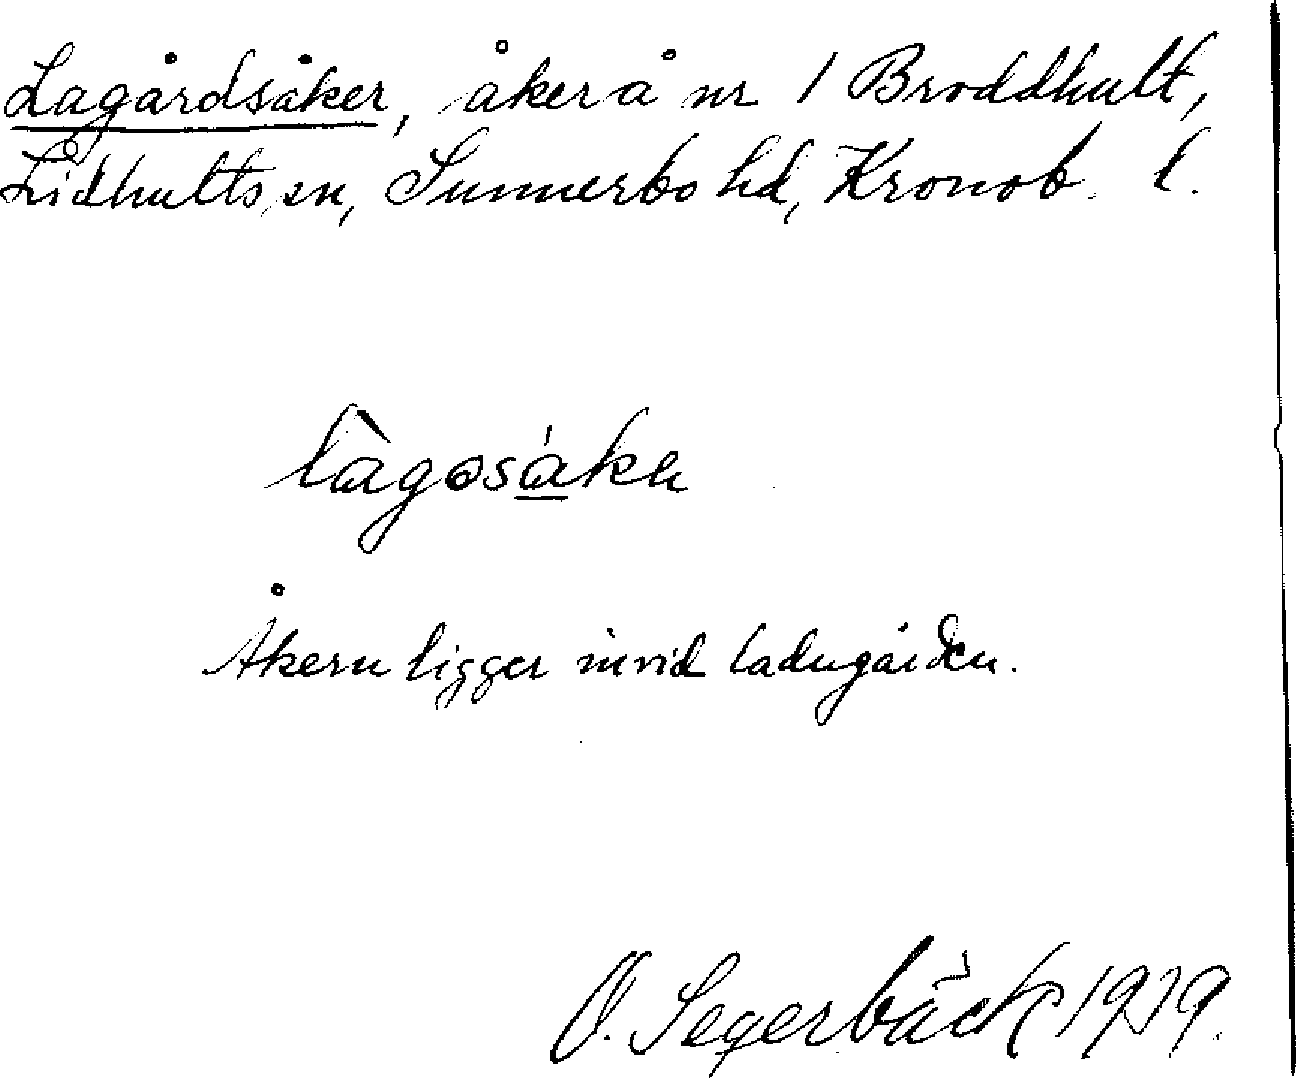 Lagårdsåker, åker å nr 1 Broddhult,
Lidhults sn, Sunnerbo hd, Kronob. l.
làgosáka
Åkern ligger invid ladugården.
O. Segerbäck 1919.